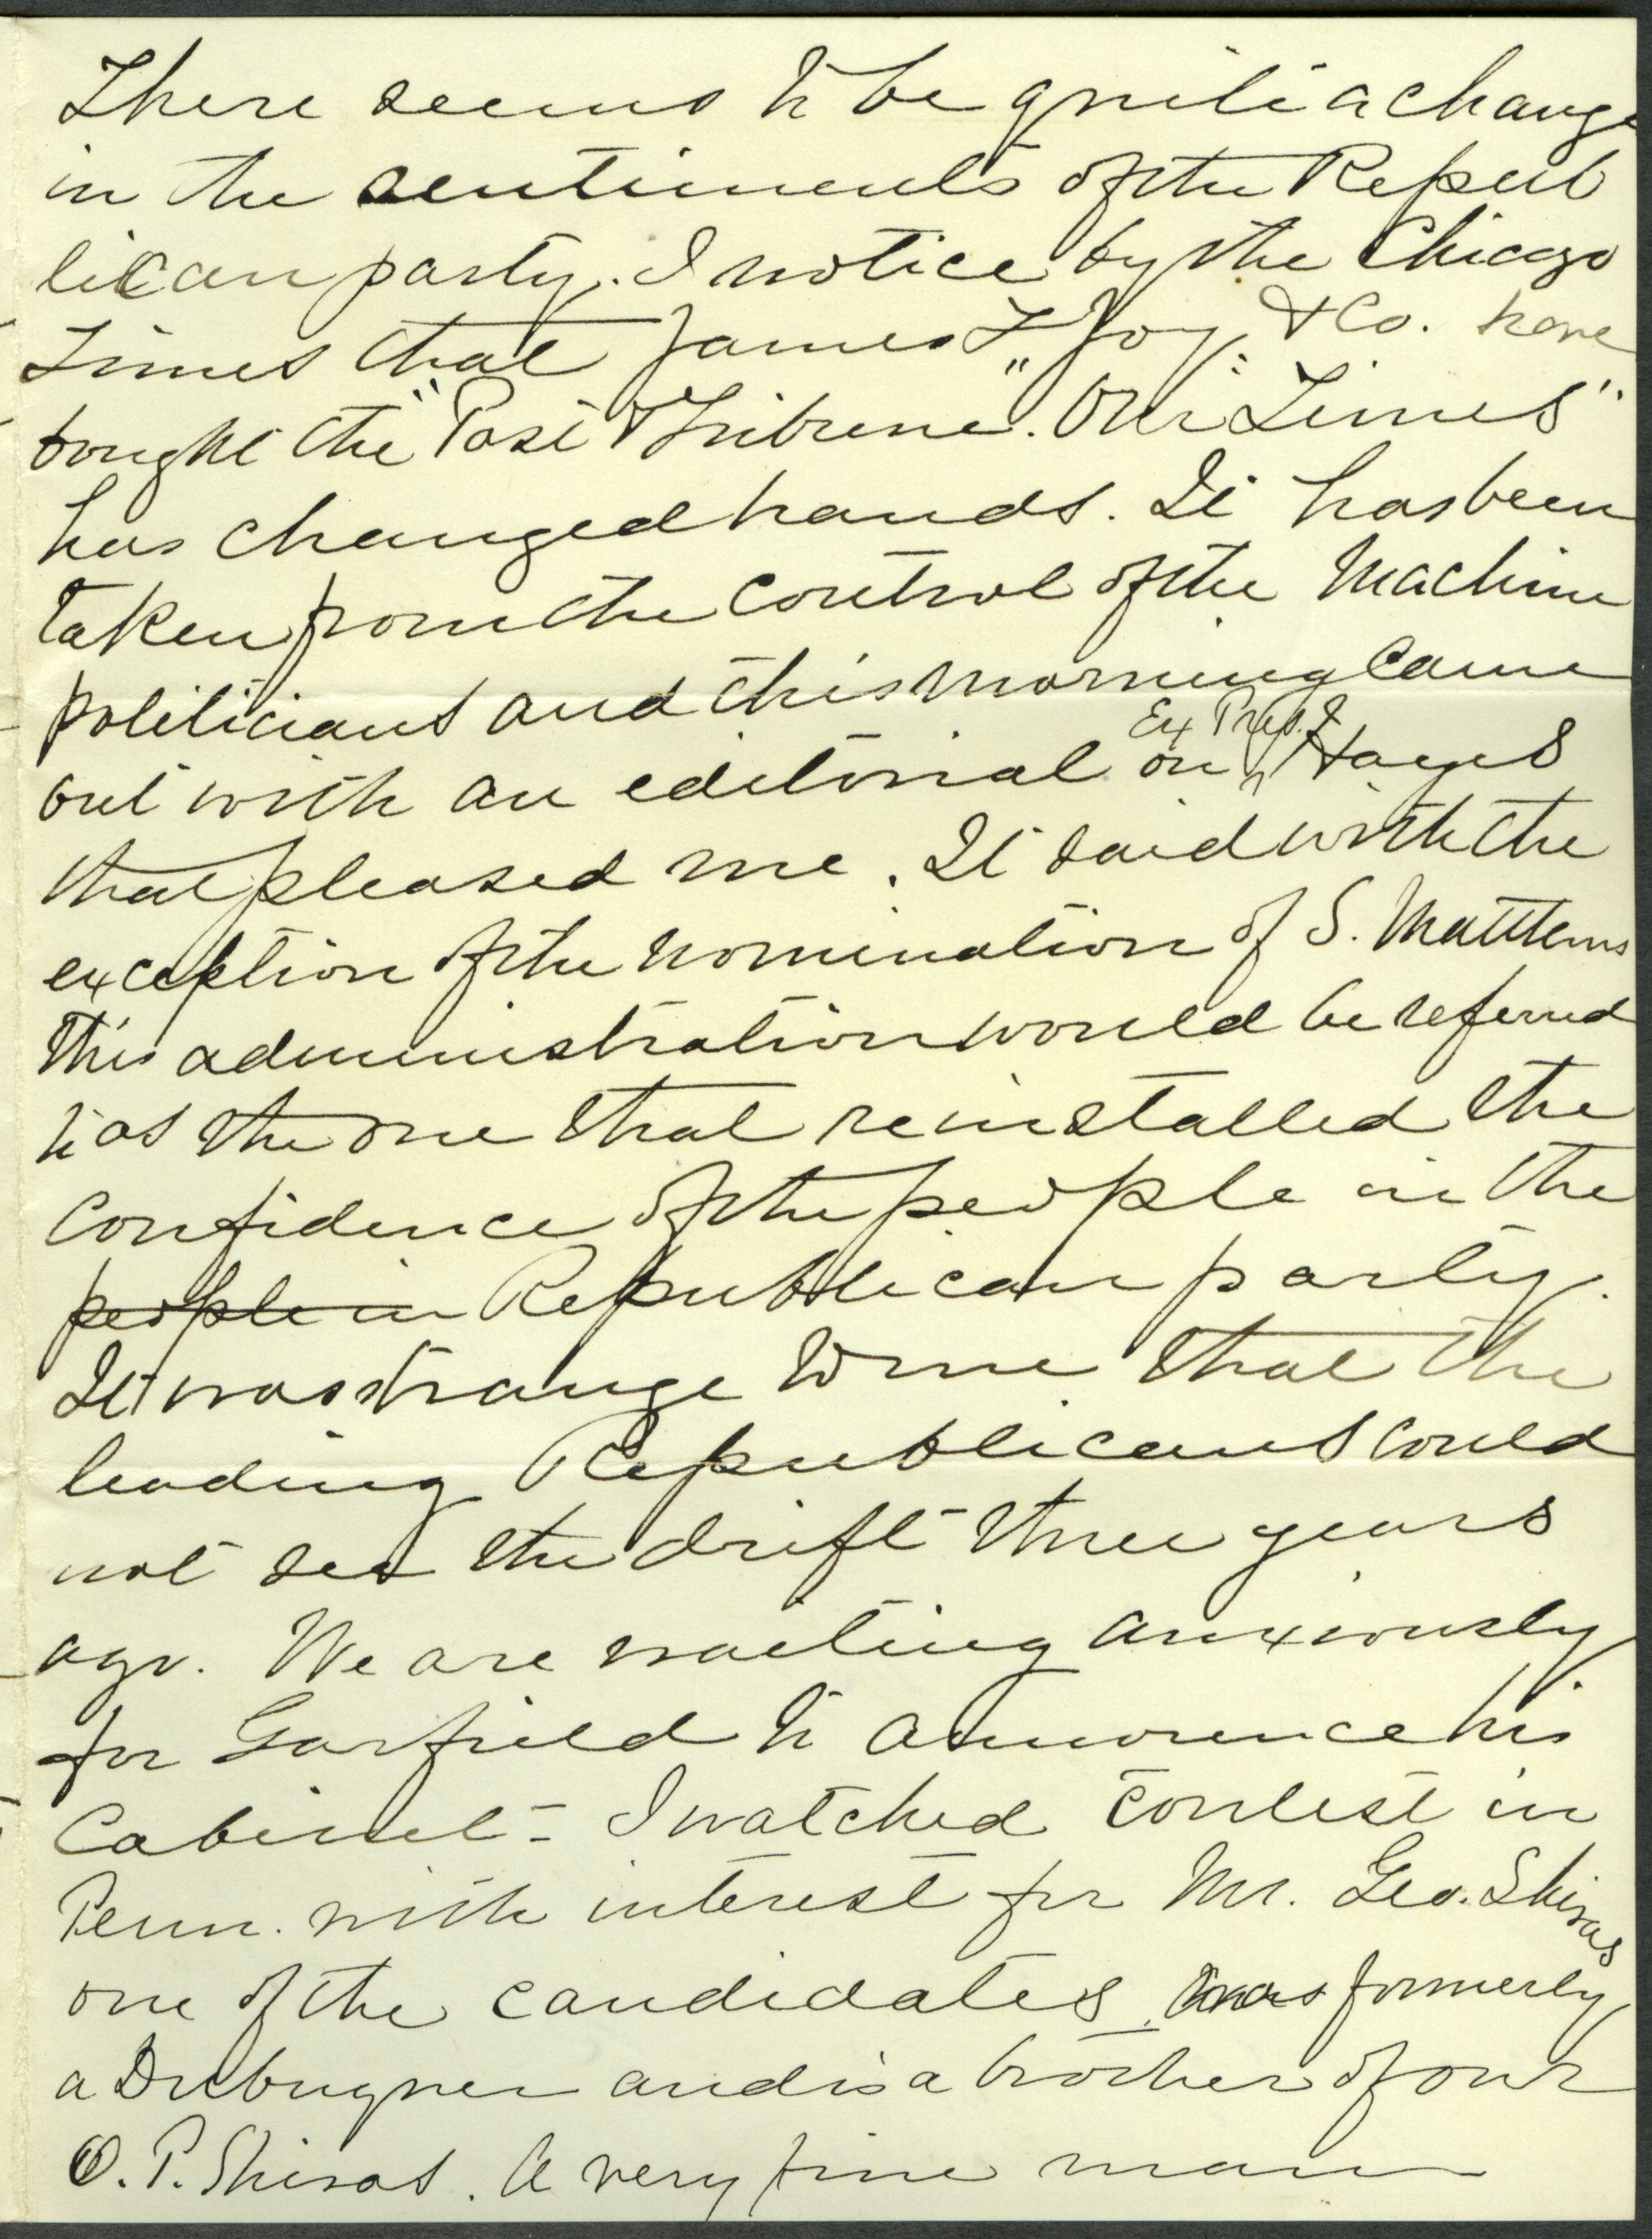 There seems to be quite a change
in the sentiments of the Repub
lican party. I notice by the Chicago
Times that James F Joy & Co. have
bought the "Post & Tribune". Our "Times"
has changed hands. It has been
taken from the control of the Machine
politicians and this morning came
out with an editorial on Ex Prest. Hayes
that pleased me. It said with the
exception of the nomination of S. Matthews
this administration would be referred
to as the one that reinstalled the
confidence of the people in the
people in Republican party.
It was strange to me that the
leading Republicans could
not see the drift three years
ago. We are waiting anxiously
for Garfield to announce his
Cabinet - I watched contest in
Penn. with interest for Mr. Geo. Shiras
one of the candidates was formerly
a Dubuquer and is a brother of our
O. P. Shiras. A very fine man